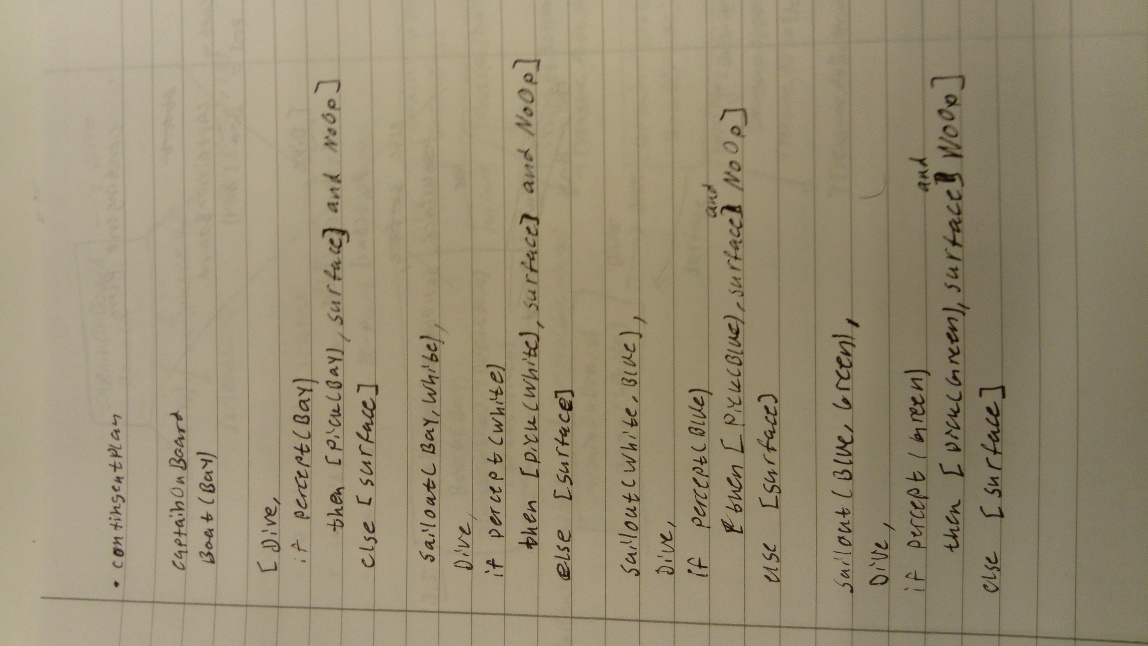 • contingentPlan
captainOnBoard
Boat(Bay)
[Dive,
if percept(Bay)
then [pick(Bay), surface] and NoOp]
else [surface]
sailout(Bay, White),
Dive,
if percept(White)
then [pick(White), surface] and NoOp]
else [surface]
sailout(White, Blue),
Dive,
if percept(Blue)
then [pick(Blue), surface] and NoOp]
else [surface]
sailout(Blue, Green),
Dive,
if percept(Green)
then [pick(Green), surface] and NoOp]
else [surface]